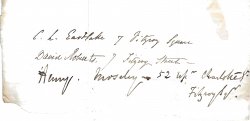 C. L. Eastlake 7 Fitzroy Square
David Roberts 7 Fitzroy Street
Henry Moseley - 52 Upr Charlotte St
Fitzroy Sqr.